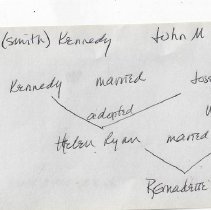 (Smith) Kennedy John M
Kennedy married
adopted
Helen Ryan married
Bernadette